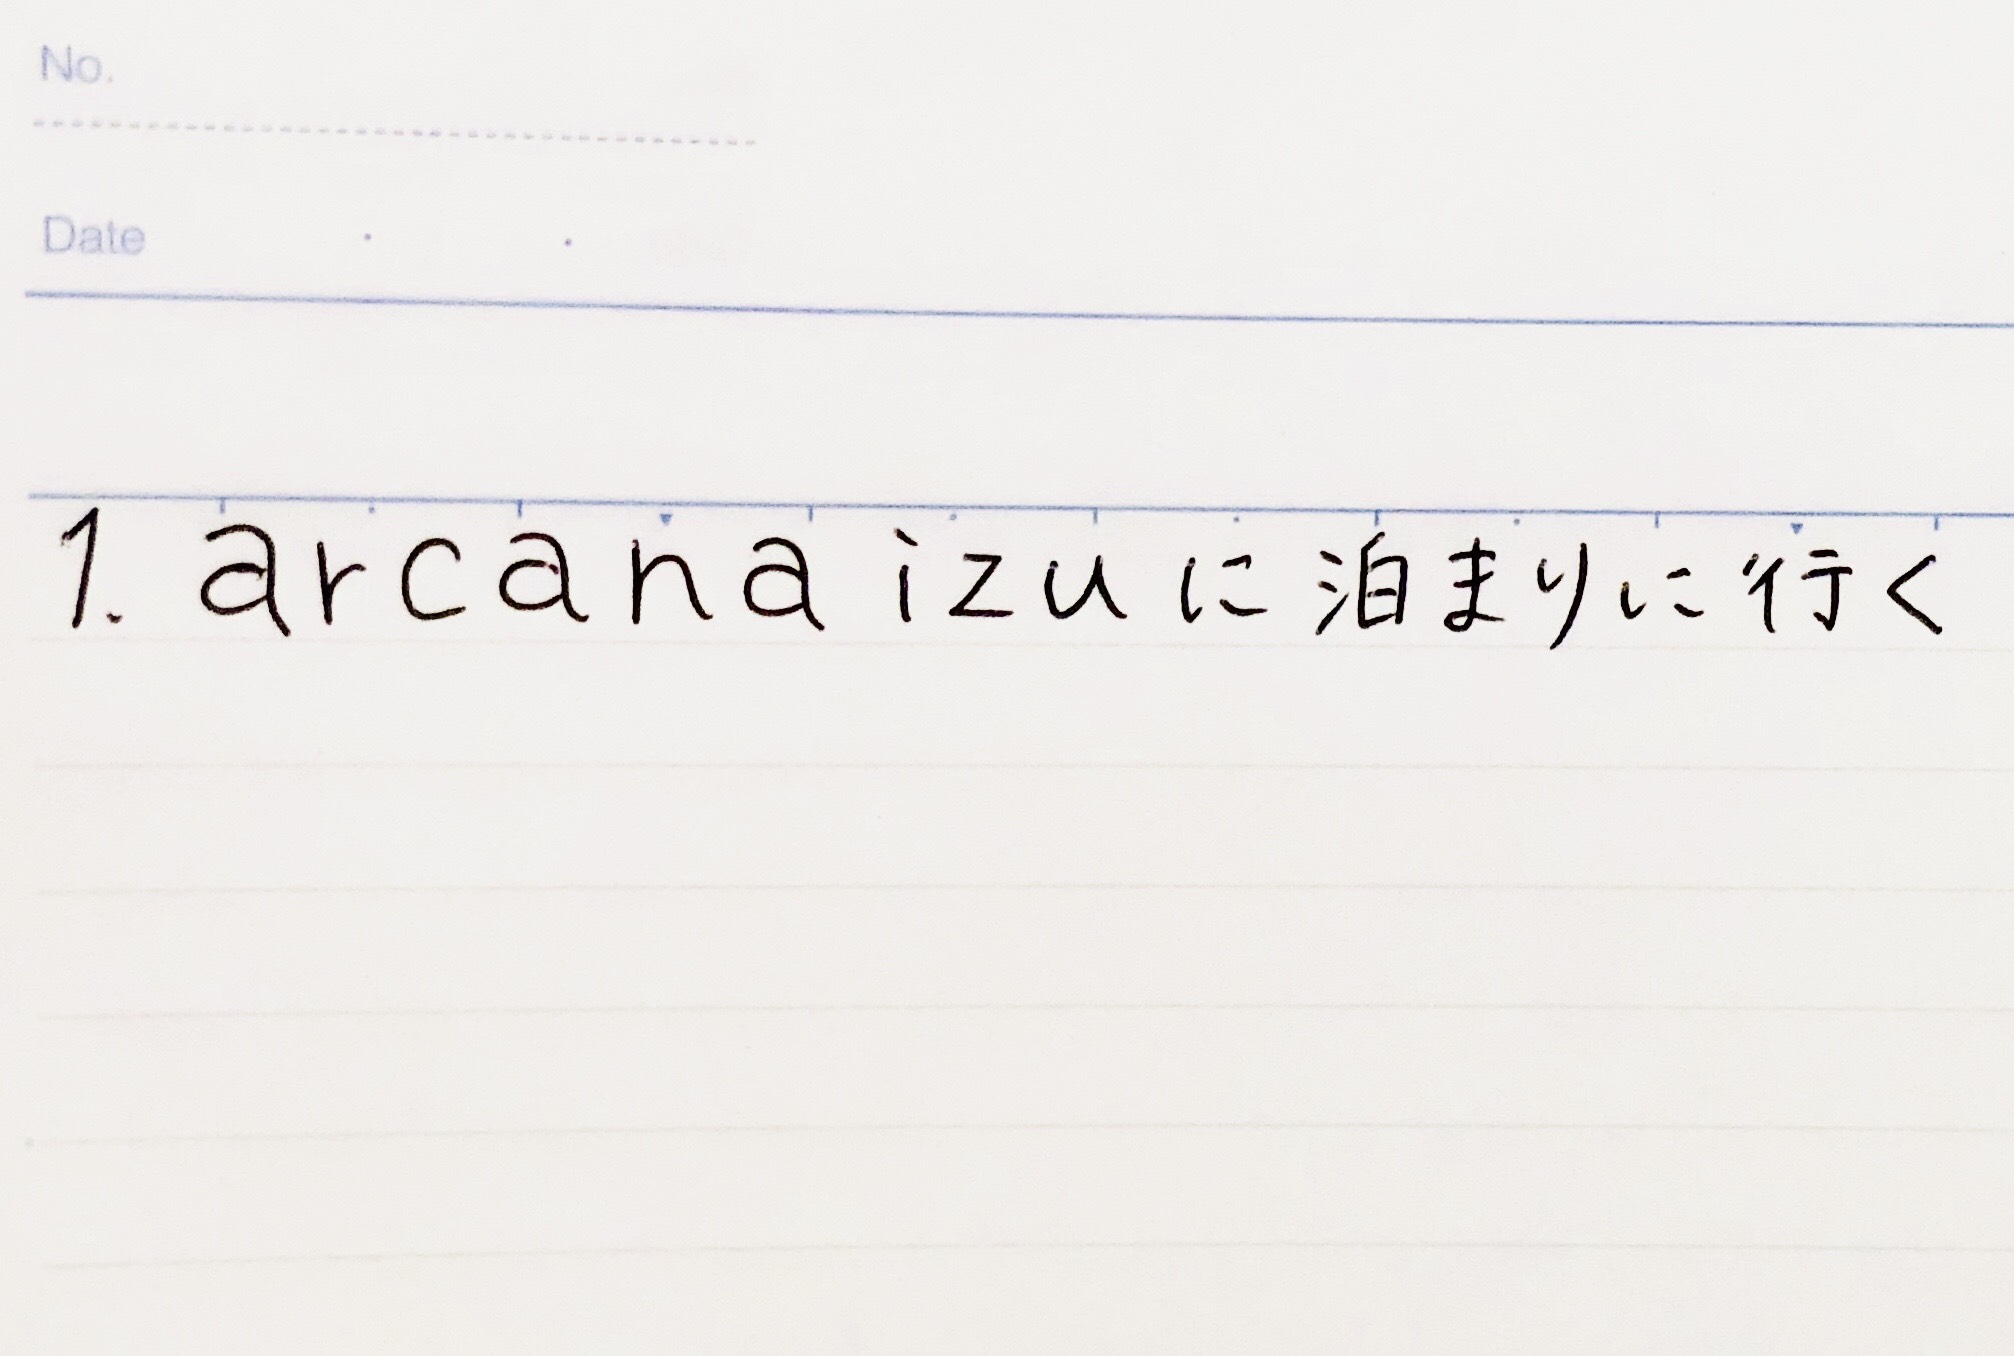 No.
Date
1. arcana izuに泊まりに行く